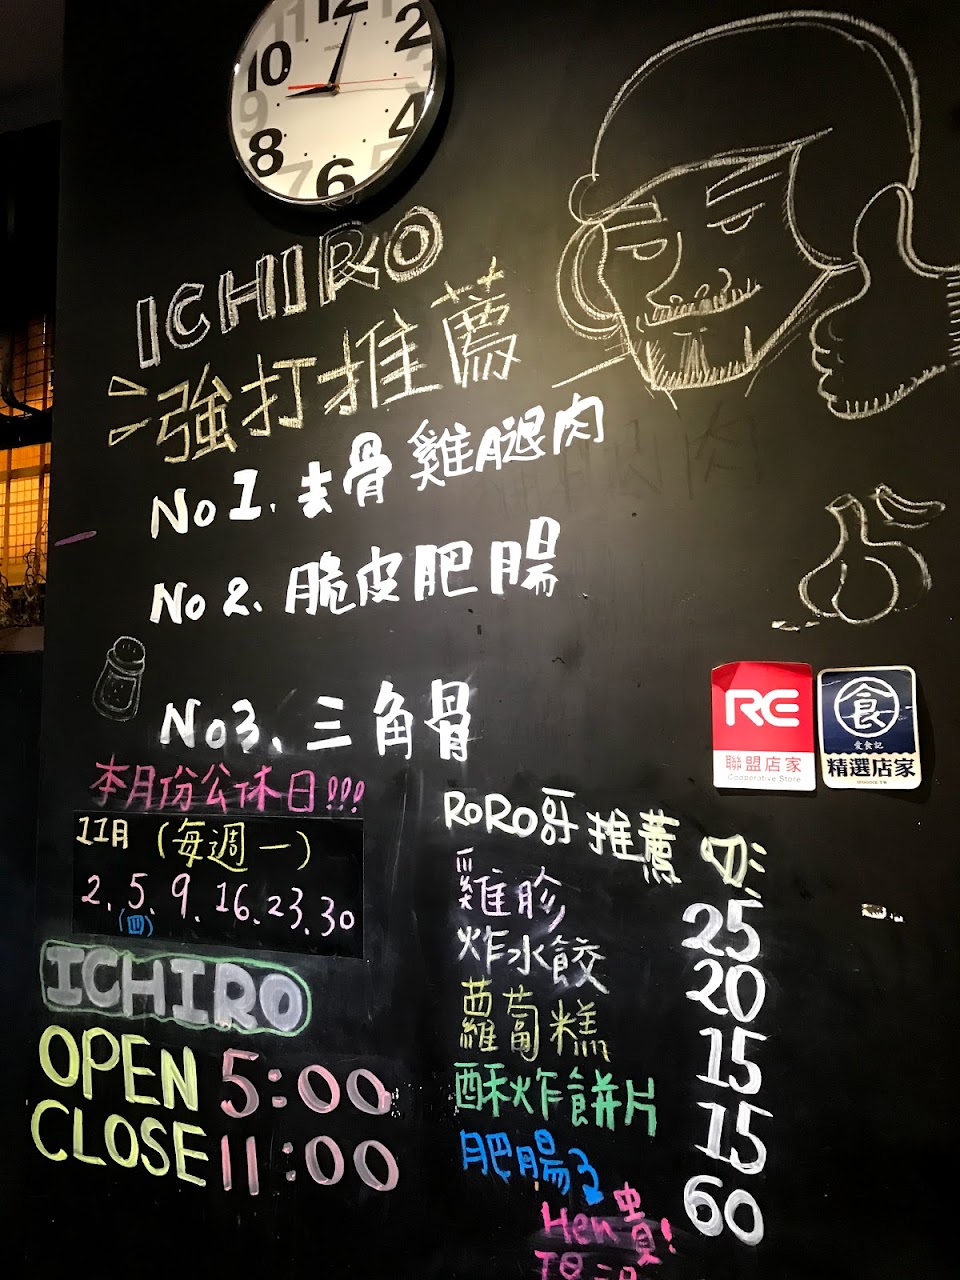 12
2
10
4
8
6
ICHIRO
強打推薦
No 1. 去骨雞腿肉
No 2. 脆皮肥腸
No 3. 三角骨
RE
聯盟店家
Cooperative Store
食
愛食記
精選店家
本月份公休日!!!
11月 (每週一)
2. 5. 9. 16. 23. 30
(四)
ICHIRO
OPEN 5:00
CLOSE 11:00
RORO哥推薦
雞胗 25
炸水餃 20
蘿蔔糕 15
酥炸餅片 15
肥腸 60
Hen貴!